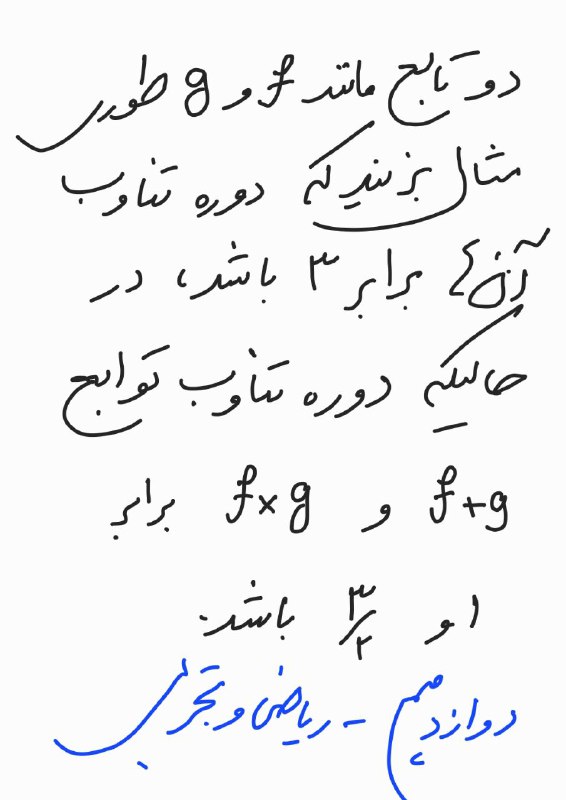 دو تابع مانند f و g طوری
مثال بزنید که دوره تناوب
آن‌ها برابر ۳ باشد، در
حالیکه دوره تناوب توابع
f+g و f×g برابر
۱ و ۳/۲ باشد.
دوازدهم - ریاضی و تجربی